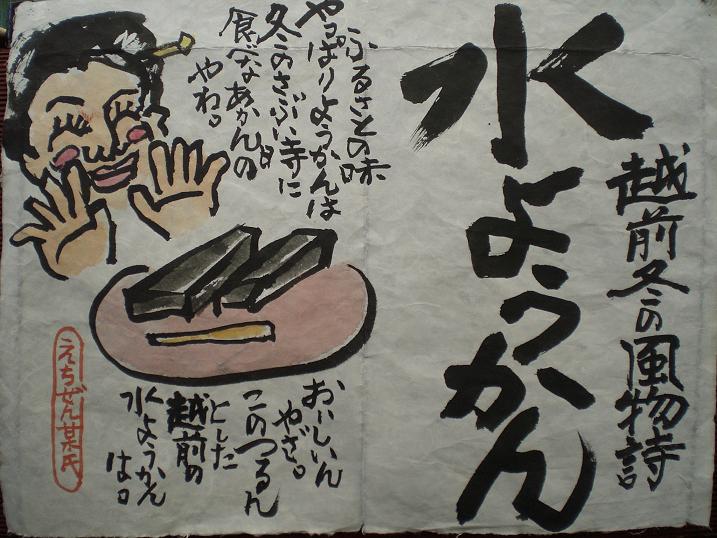 越前冬の風物詩
水ようかん
ふるさとの味
やっぱりようかんは
冬のさぶい時に
食べなあかんの
やわ。
おいしいん
やざ。
このつるん
とした
越前の
水ようかん
は。
えちぜん某氏